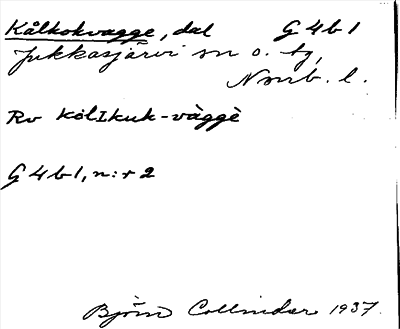 Kålkokvagge, dal G 4 b 1
Jukkasjärvi sn o. tg,
Nmb. l.
Rv kòlIkuk-vàggè
G 4 b 1, n:r 2
Björn Collinder 1937.